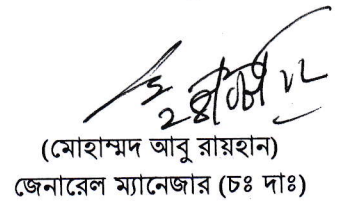 (মোহাম্মদ আবু রায়হান)
জেনারেল ম্যানেজার (চঃ দাঃ)